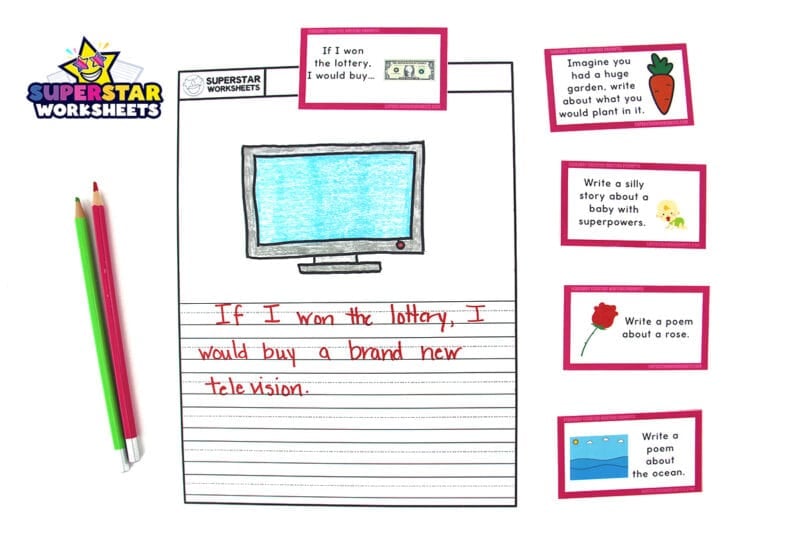 SUPERSTAR
WORKSHEETS
SUPERSTAR
WORKSHEETS
If I won
the lottery,
I would buy...
If I won the lottery, I
would buy a brand new
television.
Imagine you
had a huge
garden, write
about what you
would plant in it.
Write a silly
story about a
baby with
superpowers.
Write a poem
about a rose.
Write a
poem
about
the ocean.